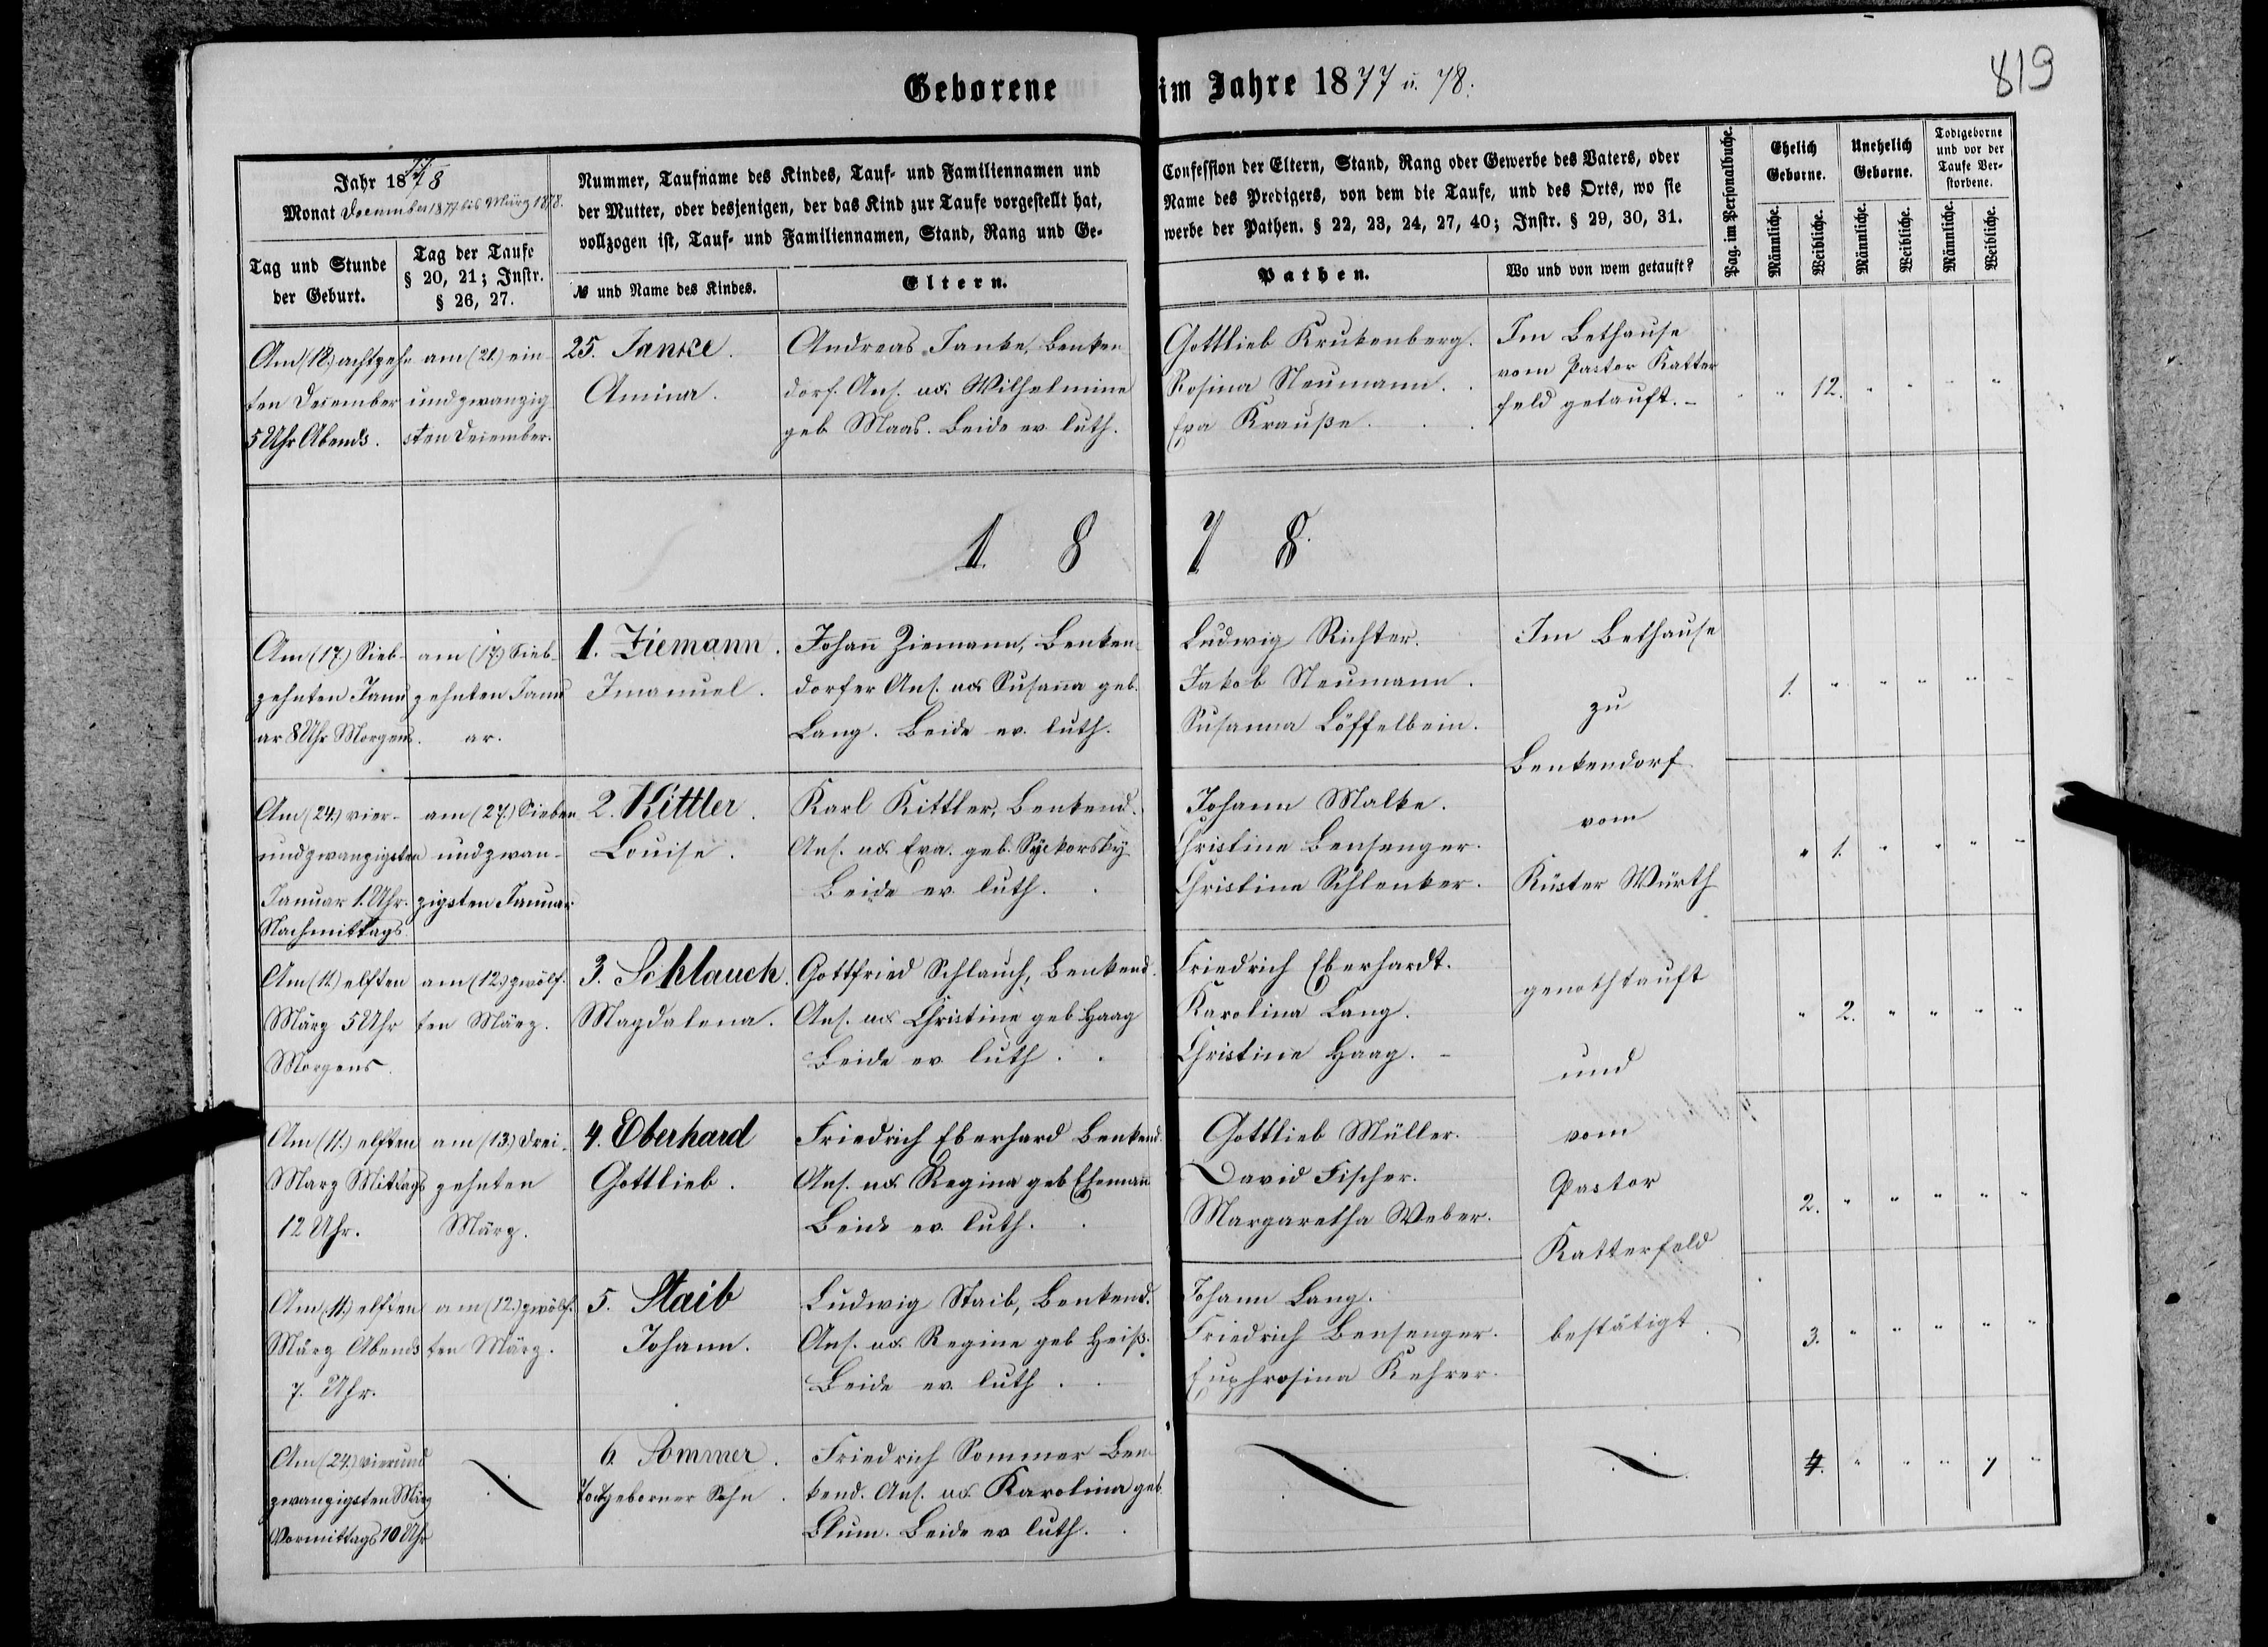 819
Geborene im Jahre 1877 u. 78.
Jahr 1877/8
Monat December 1877 bis März 1878.
Tag und Stunde
der Geburt.
Tag der Taufe
§ 20, 21; Instr.
§ 26, 27.
Nummer, Taufname des Kindes, Tauf- und Familiennamen und
der Mutter, oder desjenigen, der das Kind zur Taufe vorgestellt hat,
vollzogen ist, Tauf- und Familiennamen, Stand, Rang und Ge-
№ und Name des Kindes.
Eltern.
Confession der Eltern, Stand, Rang oder Gewerbe des Vaters, oder
Name des Predigers, von dem die Taufe, und des Orts, wo sie
werbe der Pathen. § 22, 23, 24, 27, 40; Instr. § 29, 30, 31.
Pathen.
Wo und von wem getauft?
Pag. im Personalbuche.
Ehelich
Geborne.
Unehelich
Geborne.
Todtgeborne
und vor der
Taufe Ver-
storbene.
Männliche.
Weibliche.
Männliche.
Weibliche.
Männliche.
Weibliche.
Am (18.) achtzehn
ten December
5 Uhr Abends.
am (21.) ein
und zwanzig
sten December.
25. Janke.
Amina.
Andreas Janke, Benken
dorf. Ans. u. Wilhelmine
geb Maas. Beide ev. luth.
Gottlieb Krukenberg.
Rosina Neumann.
Eva Krauße.
Im Bethause
vom Pastor Katter
feld getauft. –
" 12. " " " "
1 8 7 8.
Am (17.) Sieb-
zehnten Janu
ar 8 Uhr Morgens.
am (17.) Sieb-
zehnten Janu
ar.
1. Ziemann.
Imanuel.
Johañ Ziemann, Benken-
dorfer Ans. u. Susaña geb.
Lang. Beide ev. luth.
Ludwig Richter.
Jakob Neumann.
Susanna Löffelbein.
Im Bethause
zu
Benkendorf
vom
Küster Würth
genothtauft
und
vom
Pastor
Katterfeld
bestätigt.
1. " " " " "
Am (24.) vier-
undzwanzigsten
Januar 1. Uhr.
Nachmittags.
am (27.) Sieben
undzwan-
zigsten Januar
2. Kittler.
Louise.
Karl Kittler, Benkend.
Ans. u. Eva. geb. Syckorsky
Beide ev. luth.
Johann Malke.
Christine Bensenger.
Christine Schlenker.
" 1. " " " "
Am (11.) elften
März 5 Uhr
Morgens.
am (12.) zwölf.
ten März.
3. Schlauch.
Magdalena.
Gottfried Schlauch, Benkend.
Ans. u. Christine geb Haag
Beide ev luth.
Friedrich Eberhardt.
Karolina Lang.
Christine Haag. –
" 2. " " " "
Am (11.) elften
März Mittags
12 Uhr.
am (13.) Drei-
zehnten
März.
4. Eberhard
Gottlieb.
Friedrich Eberhard Benkend.
Ans. u. Regina geb Ehemañ
Beide ev. luth.
Gottlieb Müller.
David Fischer.
Margaretha Weber.
2. " " " " "
Am (11.) elften
März Abends
7. Uhr.
am (12.) zwölf.
ten März.
5. Staib
Johann.
Ludwig Staib, Benkend.
Ans. u. Regine geb Heiß.
Beide ev. luth.
Johann Lang.
Friedrich Bensenger.
Euphrosina Kehrer.
3. " " " " "
Am (24.) vierund
zwanzigsten März
Vormittags 10 Uhr
6. Sommer.
Todtgeborner Sohn.
Friedrich Sommer Ben-
kend. Ans. u. Karolina geb.
Blum. Beide ev luth.
4. " " " 1 "